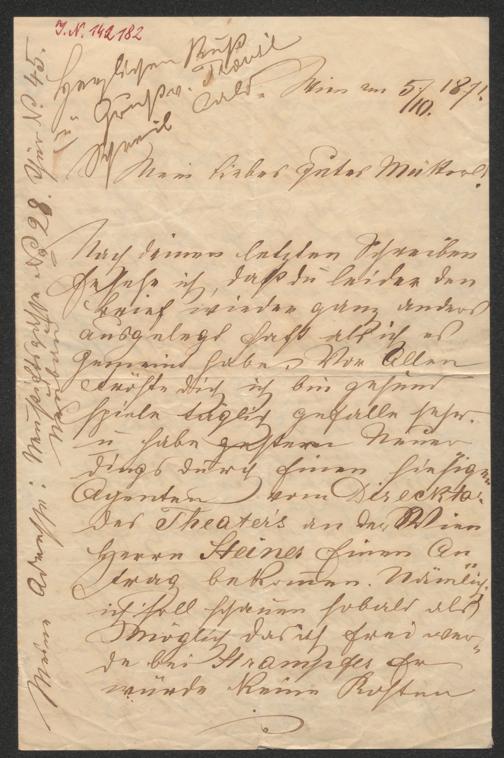 I.N. 142182
Herzlichen Kuß
u Gruß v.
Schreib bald.
Wien am 5/10. 1871.
Mein liebes gutes Mutterl!
Nach deinem letzten Schreiben
ersehe ich, daß du leider den
Brief wieder ganz anders
ausgelegt hast als ich es
gemeint habe. Vor Allen
tröste dich, ich bin gesund
spiele täglich gefalle sehr.
u habe gestern Neuer
dings durch Einen hiesigen
Agenten vom Direcktor
des Theater's an der Wien
Herrn Steiner Einen An
trag bekomen. Nämlich
ich soll schauen sobald als
Möglich das ich frei wer-
de bei Strampfer Er
würde keine Kosten
Meine Adresse: Neustiftgasse No 28. Thür No. 45.
Neubau